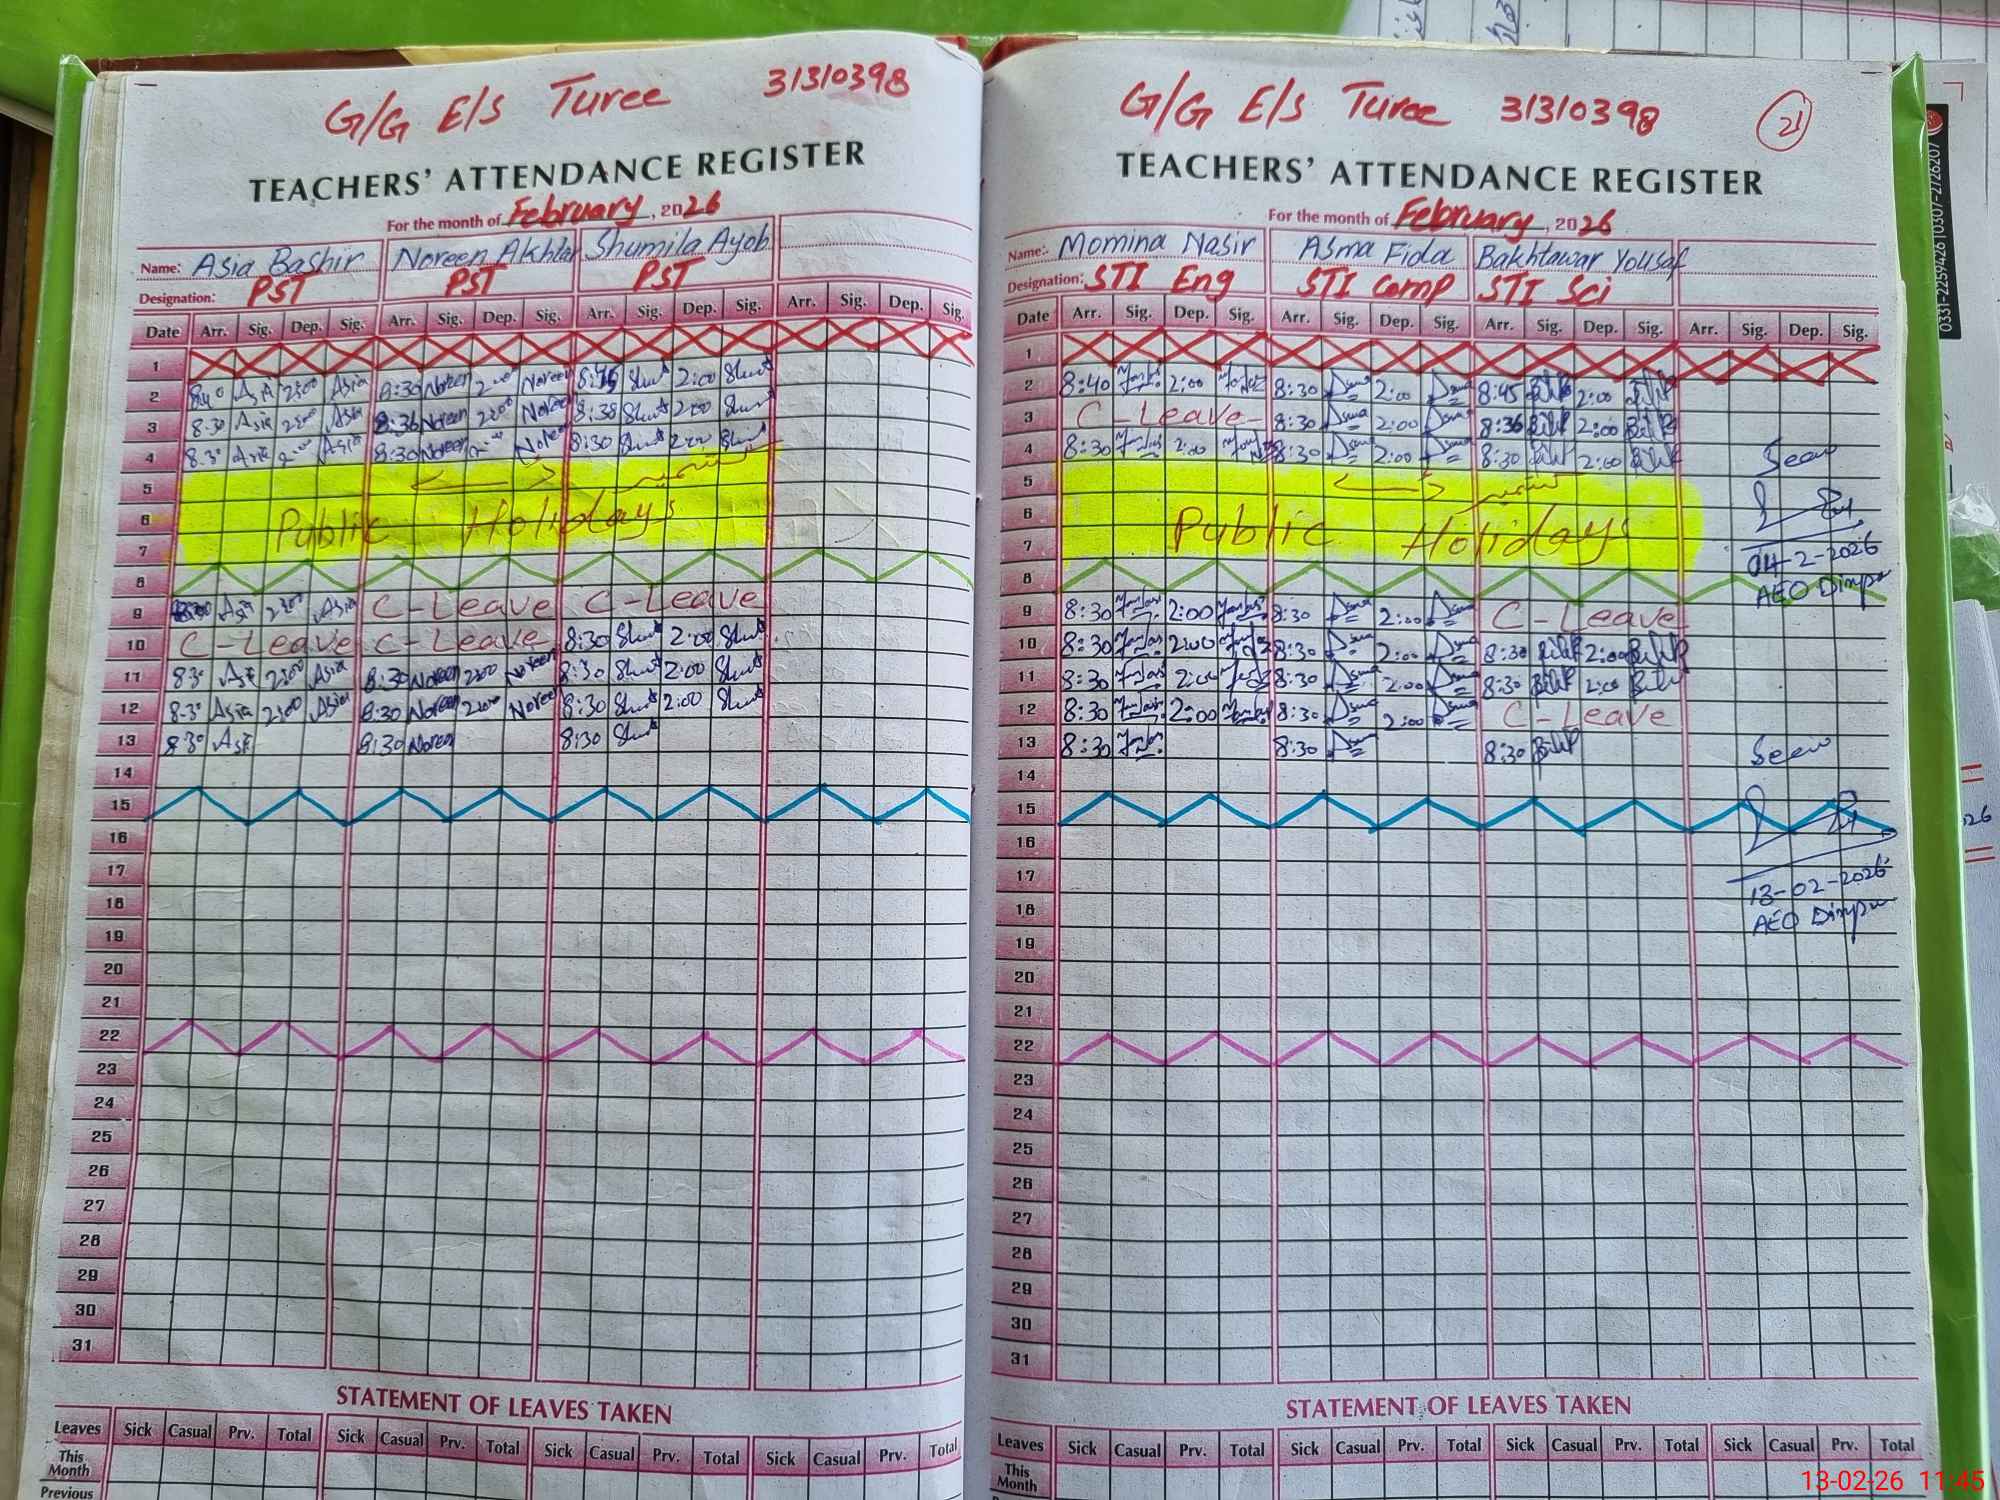 G/G E/S Turee 31310398
TEACHERS' ATTENDANCE REGISTER
For the month of February, 2026
Name: Asia Bashir Noreen Akhtar Shumila Ayob
Designation: PST PST PST
Date Arr. Sig. Dep. Sig. Arr. Sig. Dep. Sig. Arr. Sig. Dep. Sig. Arr. Sig. Dep. Sig.
1
2 8:40 Asia 2:00 Asia 8:30 Noreen 2:00 Noreen 8:45 2:00
3 8:30 Asia 2:00 Asia 8:36 Noreen 2:00 Noreen 8:38 2:00
4 8:30 Asia 2:00 Asia 8:30 Noreen Noreen 8:30 2:00
5
6 Public Holidays
7
8
9 Asia 2:00 Asia C-Leave C-Leave
10 C-Leave C-Leave 8:30 2:00
11 8:30 Asia 2:00 Asia 8:30 Noreen 2:00 Noreen 8:30 2:00
12 8:30 Asia 2:00 Asia 8:30 Noreen 2:00 Noreen 8:30 2:00
13 8:30 Asia 8:30 Noreen 8:30
14
15
16
17
18
19
20
21
22
23
24
25
26
27
28
29
30
31
STATEMENT OF LEAVES TAKEN
Leaves Sick Casual Prv. Total Sick Casual Prv. Total Sick Casual Prv. Total Sick Casual Prv. Total
This Month
Previous
G/G E/S Turee 31310398 21
TEACHERS' ATTENDANCE REGISTER
For the month of February, 2026
Name: Momina Nasir Asma Fida Bakhtawar Yousaf
Designation: STI Eng STI Comp STI Sci
Date Arr. Sig. Dep. Sig. Arr. Sig. Dep. Sig. Arr. Sig. Dep. Sig. Arr. Sig. Dep. Sig.
1
2 8:40 2:00 8:30 Asma 2:00 Asma 8:45 2:00
3 C-Leave 8:30 Asma 2:00 Asma 8:36 2:00
4 8:30 2:00 8:30 Asma 2:00 Asma 8:30 2:00 Seen
5
6 Public Holidays
7 04-2-2026
8 AEO
9 8:30 2:00 8:30 Asma 2:00 Asma C-Leave
10 8:30 2:00 8:30 Asma 2:00 Asma 8:30 2:00
11 8:30 2:00 8:30 Asma 2:00 Asma 8:30 2:00
12 8:30 2:00 8:30 Asma 2:00 Asma C-Leave
13 8:30 8:30 Asma 8:30 Seen
14
15
16
17 13-02-2026
18 AEO
19
20
21
22
23
24
25
26
27
28
29
30
31
STATEMENT OF LEAVES TAKEN
Leaves Sick Casual Prv. Total Sick Casual Prv. Total Sick Casual Prv. Total Sick Casual Prv. Total
This Month
0331-2259426 | 0307-2726207
13-02-26 11:45